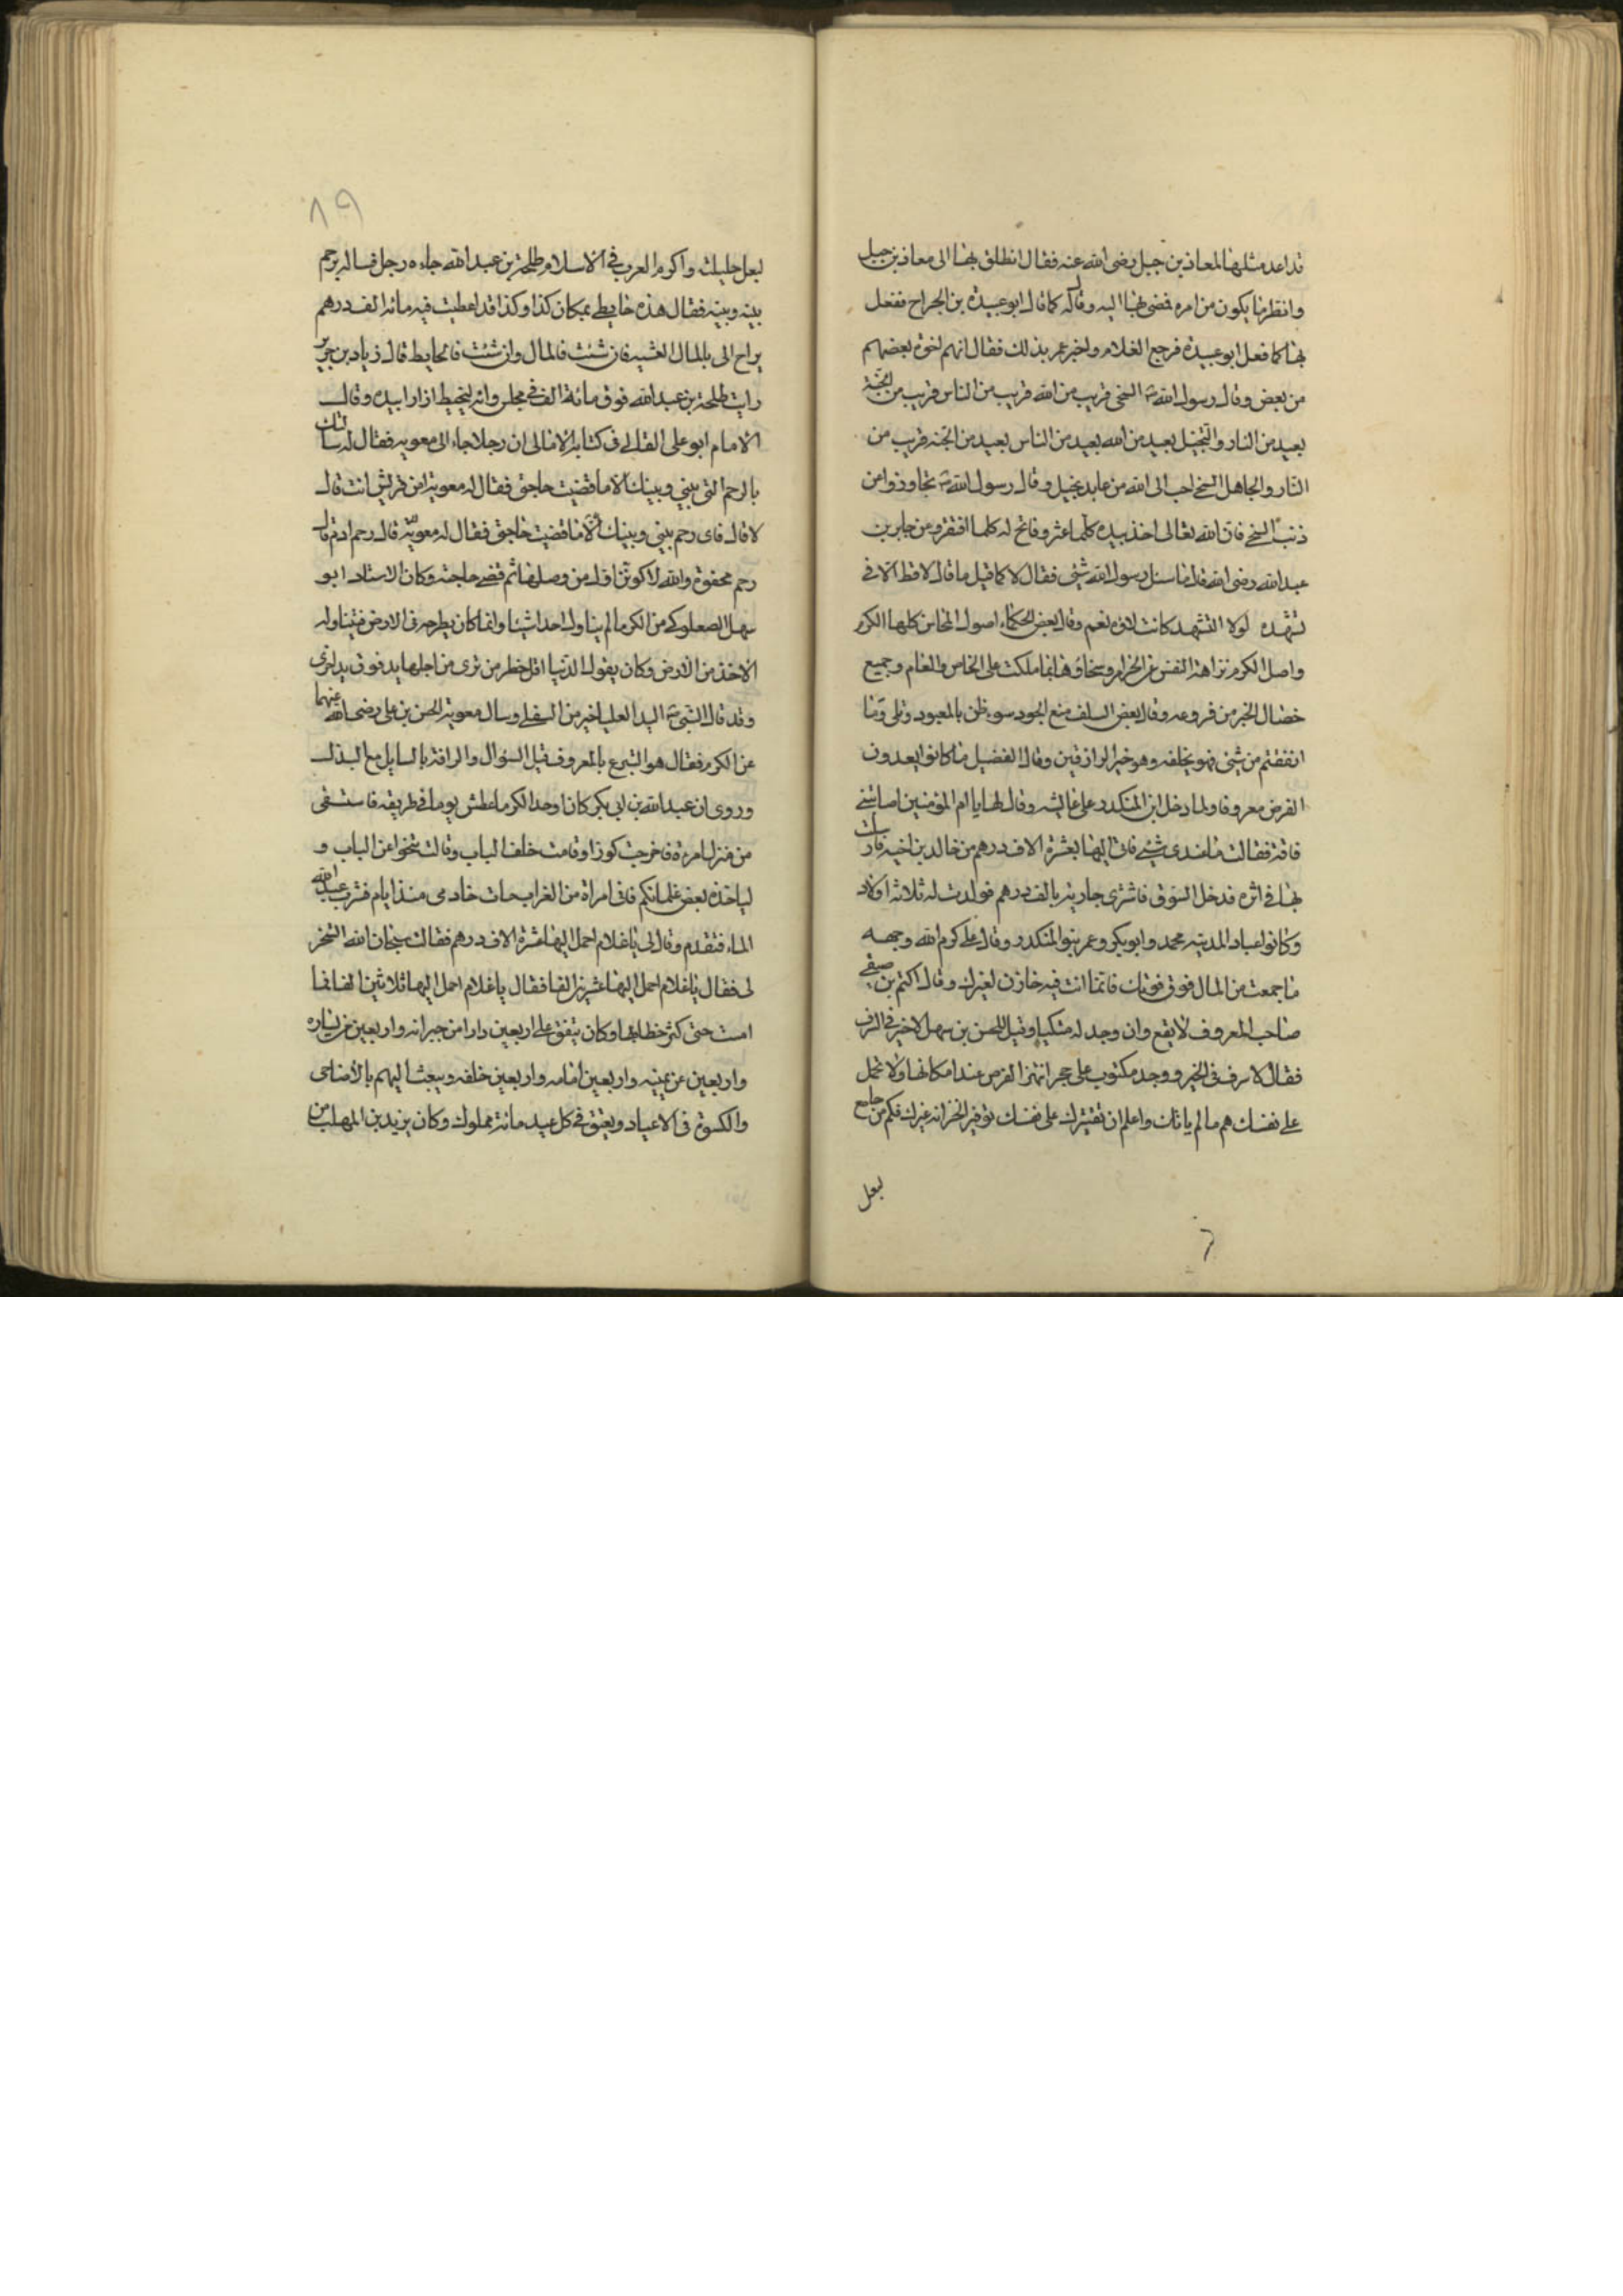 قداعد مثلها لمعاذ بن جبل رضى الله عنه فقال انطلق بها الى معاذ بن جبل
وانظر ما يكون من امره فمضى بها اليه وقال له كما قال ابو عبيدة بن الجراح ففعل
بها كما فعل ابو عبيدة فرجع الغلام واخبر عمر بذلك فقال انهم اخوة بعضهم
من بعض وقال رسول الله السخى قريب من الله قريب من الناس قريب من الجنة
بعيد من النار والبخيل بعيد من الله بعيد من الناس بعيد من الجنة قريب من
النار والجاهل السخى احب الى الله من عابد بخيل وقال رسول الله تجاوزوا عن
ذنب السخى فان الله تعالى اخذ بيده كلما عثر وفاتح له كلما افتقر وعن جابر بن
عبد الله رضى الله قال ما سئل رسول الله شئ فقال لا كما قيل ما قال لا قط الا فى
تشهده لولا التشهد كانت لاؤه نعم وقال بعض الحكماء اصول المحاسن كلها الكرم
واصل الكرم نزاهة النفس عن الحرام وسخاؤها بما ملكت على الخاص والعام وجميع
خصال الخير من فروعه وقال بعض السلف منع الجود سوء ظن بالمعبود وتلى وما
انفقتم من شئ فهو يخلفه وهو خير الرازقين وقال الفضيل ما كانوا يعدون
القرض معروفا ولما دخل ابن المنكدر على عايشه وقال لها يا ام المؤمنين اصابتنى
فاقة فقالت ما عندى شئ فاتى اليها بعشرة الاف درهم من خالد بن اسيد فارسلت
بها فى اثره فدخل السوق فاشترى جارية بالف درهم فولدت له ثلاثة اولاد
وكانوا عباد المدينه محمد وابو بكر وعمر بنو المنكدر وقال على كرم الله وجهه
ما جمعت من المال فوق قوتك فانما انت فيه خازن لغيرك وقال اكثم بن صيفى
صاحب المعروف لا يقع وان وجد له متكيا وقيل للحسن بن سهل لا خير فى السرف
فقال لا سرف فى الخير ووجد مكتوب على حجر انتهز الفرص عند امكانها ولا تحمل
على نفسك هم ما لم ياتك واعلم ان تقتيرك على نفسك توفير لخزانه غيرك فكم من جامع
لبعل
٨٩
لبعل حليلته واكرم العرب فى الاسلام طلحة بن عبد الله جاءه رجل فساله برحم
بينه وبينه فقال هذه حايطى بمكان كذا وكذا قد اعطيت فيه مائه الف درهم
يراح الى بالمال العشيه فان شئت فالمال وان شئت فالحايط قال زياد بن جرير
رايت طلحة بن عبد الله فرق مائة الف فى مجلس وانه ليخيط ازاره بيده وقال
الامام ابو على القالى فى كتابه الامالى ان رجلا جاء الى معويه فقال له سالتك
بالرحم التى بينى وبينك الا ما قضيت حاجتى فقال له معوية امن قريش انت قال
لا قال فاى رحم بينى وبينك الا ما قضيت حاجتى فقال له معوية قال رحم ادم قال
رحم مجفوة والله لاكونن اول من وصلها ثم قضى حاجته وكان الاستاد ابو
سهل الصعلوكى من الكرم ما لم يناول احدا شيئا وانما كان يطرحه فى الارض فيتناوله
الاخذ من الارض وكان يقول الدنيا اقل خطر من ترى من اجلها يد فوق يد اخرى
وقد قال النبى اليد العليا خير من السفلى وسال معوية الحسن بن على رضى الله عنهما
عن الكرم فقال هو التبرع بالمعروف قبل السؤال والرافة بالسايل مع البذل
وروى ان عبد الله بن ابى بكر كان اوحد الكرماء عطش يوما فى طريقه فاستسقى
من منزل امرءة فاخرجت كوزا وقامت خلف الباب وقالت تنحوا عن الباب و
لياخذه بعض غلمانكم فانى امراة من العرب مات خادمى منذ ايام فشرب عبد الله
الماء فتقدم وقال لى يا غلام احمل اليها عشرة الاف درهم فقالت سبحان الله تسخر
لى فقال يا غلام احمل اليها عشرين الفا فقال يا غلام احمل اليها ثلاثين الفا فما
امست حتى كثر خطابها وكان ينفق على اربعين دارا من جيرانه واربعين عن يساره
واربعين عن يمينه واربعين امامه واربعين خلفه ويبعث اليهم بالاضاحى
والكسوة فى الاعياد ويعتق فى كل عيد مائة مملوك وكان يزيد بن المهلب من